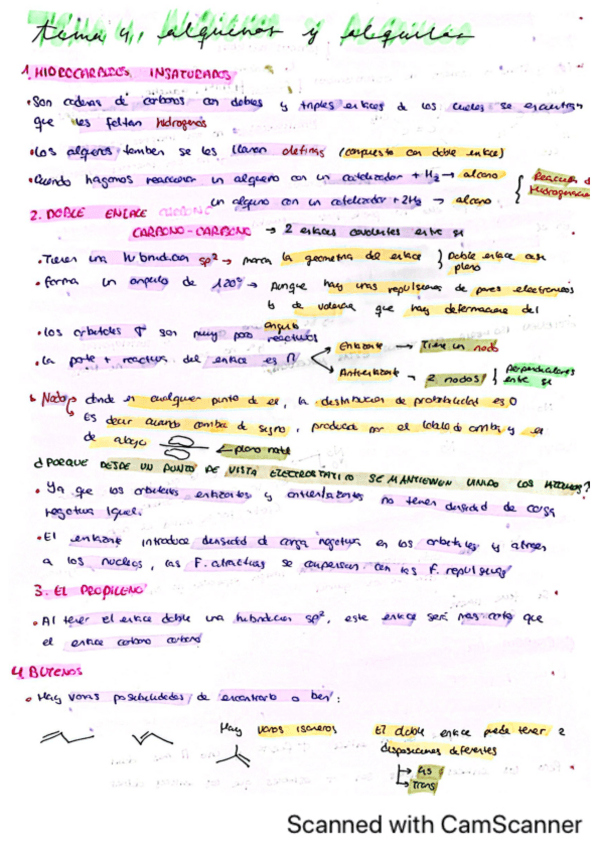 tema 4, alquenos y alquinos
1. HIDROCARBUROS INSATURADOS
• Son cadenas de carbonos con dobles y triples enlaces de los cuales se encuentran
que les faltan hidrogenos
• Los alquenos tambien se les llaman olefinas (compuesto con doble enlace)
• Cuando hagamos reaccionar un alqueno con un catalizador + H2 → alcano
un alquino con un catalizador + 2H2 → alcano
{ Reacción d
Hidrogenación
2. DOBLE ENLACE
CARBONO-CARBONO → 2 enlaces covalentes entre si
• Tienen una hibridacion sp² → marca la geometria del enlace } Doble enlace
plano
• forma un angulo de 120° → Aunque hay unas repulsiones de pares electronicos
de valencia que hay deformacion del
angulo
• los orbitales σ son muy poco reactivos
• la parte + reactiva del enlace es Π
Enlazante → Tiene un nodo
Antienlazante → 2 nodos } perpendiculares
entre si
↳ Nodo → donde en cualquier punto de el, la distribucion de probabilidad es 0
Es decir cuando cambia de signo, producida por el lobulo de arriba y el
de abajo ← plano nodal
¿PORQUE DESDE UN PUNTO DE VISTA ELECTROSTATICO SE MANTIENEN UNIDO LOS NUCLEOS?
• Ya que los orbitales enlazantes y antienlazantes no tienen densidad de carga
negativa igual.
• El enlazante introduce densidad d carga negativa en los orbitales y atraen
a los nucleos, las F. atractivas se compensan con las F. repulsivas
3. EL PROPILENO
• Al tener el enlace doble una hibridacion sp², este enlace será mas corto que
el enlace carbono carbono
4. BUTENOS
• Hay varias posibilidades de encontrarlo o ber:
Hay varios isomeros
El doble enlace puede tener 2
disposiciones diferentes
→ Cis
→ Trans
Scanned with CamScanner